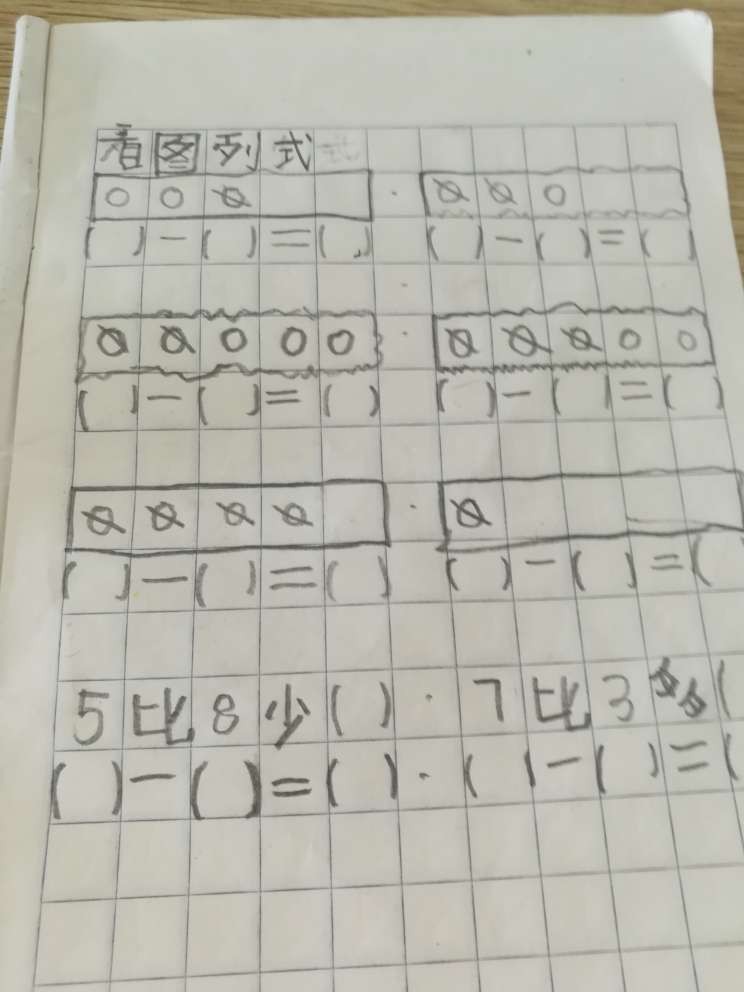 看图列式
( ) - ( ) = ( ) ( ) - ( ) = ( )
( ) - ( ) = ( ) ( ) - ( ) = ( )
( ) - ( ) = ( ) ( ) - ( ) = (
5比8少( ) · 7比3多(
( ) - ( ) = ( ) · ( ) - ( ) = (